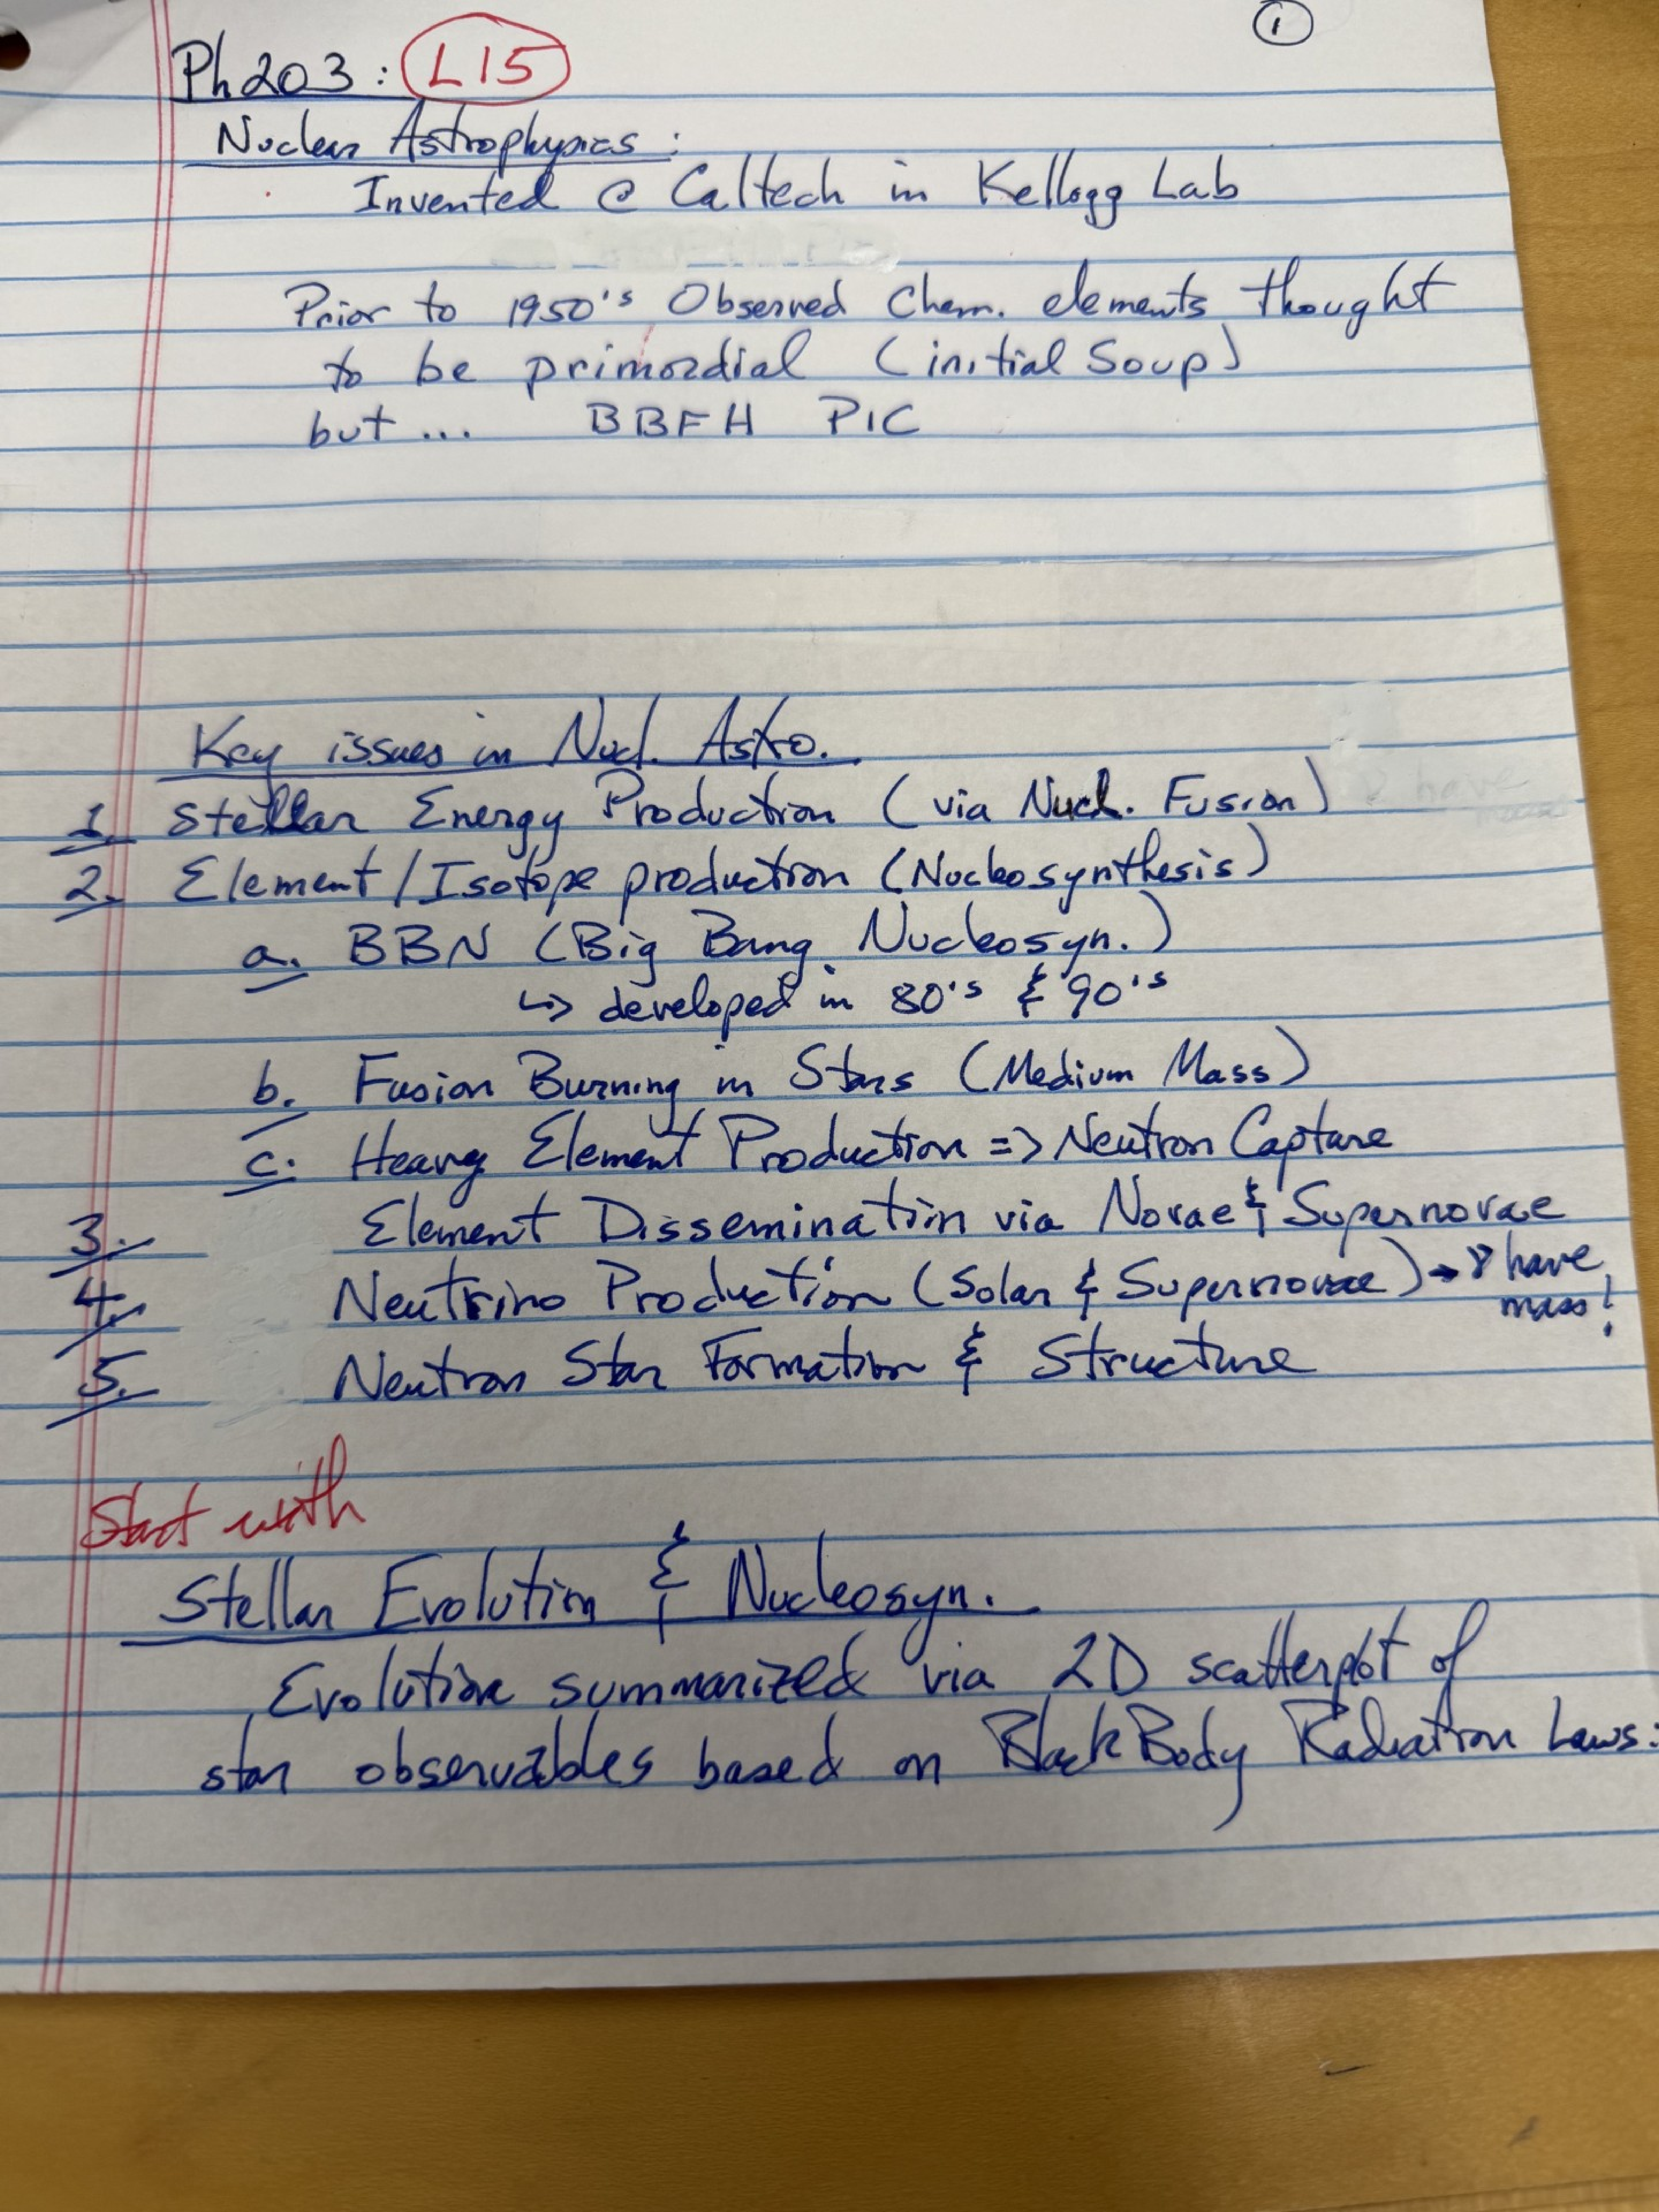 ①
Ph203: L15
Nuclear Astrophysics:
Invented @ Caltech in Kellogg Lab
Prior to 1950's Observed Chem. elements thought
to be primordial (initial Soup)
but ... BBFH PIC
Key issues in Nucl. Astro.
1. Stellar Energy Production (via Nucl. Fusion)
2. Element/Isotope production (Nucleosynthesis)
a. BBN (Big Bang Nucleosyn.)
↳ developed in 80's & 90's
b. Fusion Burning in Stars (Medium Mass)
c. Heavy Element Production => Neutron Capture
3. Element Dissemination via Novae & Supernovae
4. Neutrino Production (Solar & Supernovae) → ν have
mass!
5. Neutron Star Formation & Structure
Start with
Stellar Evolution & Nucleosyn.
Evolution summarized via 2D scatterplot of
star observables based on BlackBody Radiation Laws: